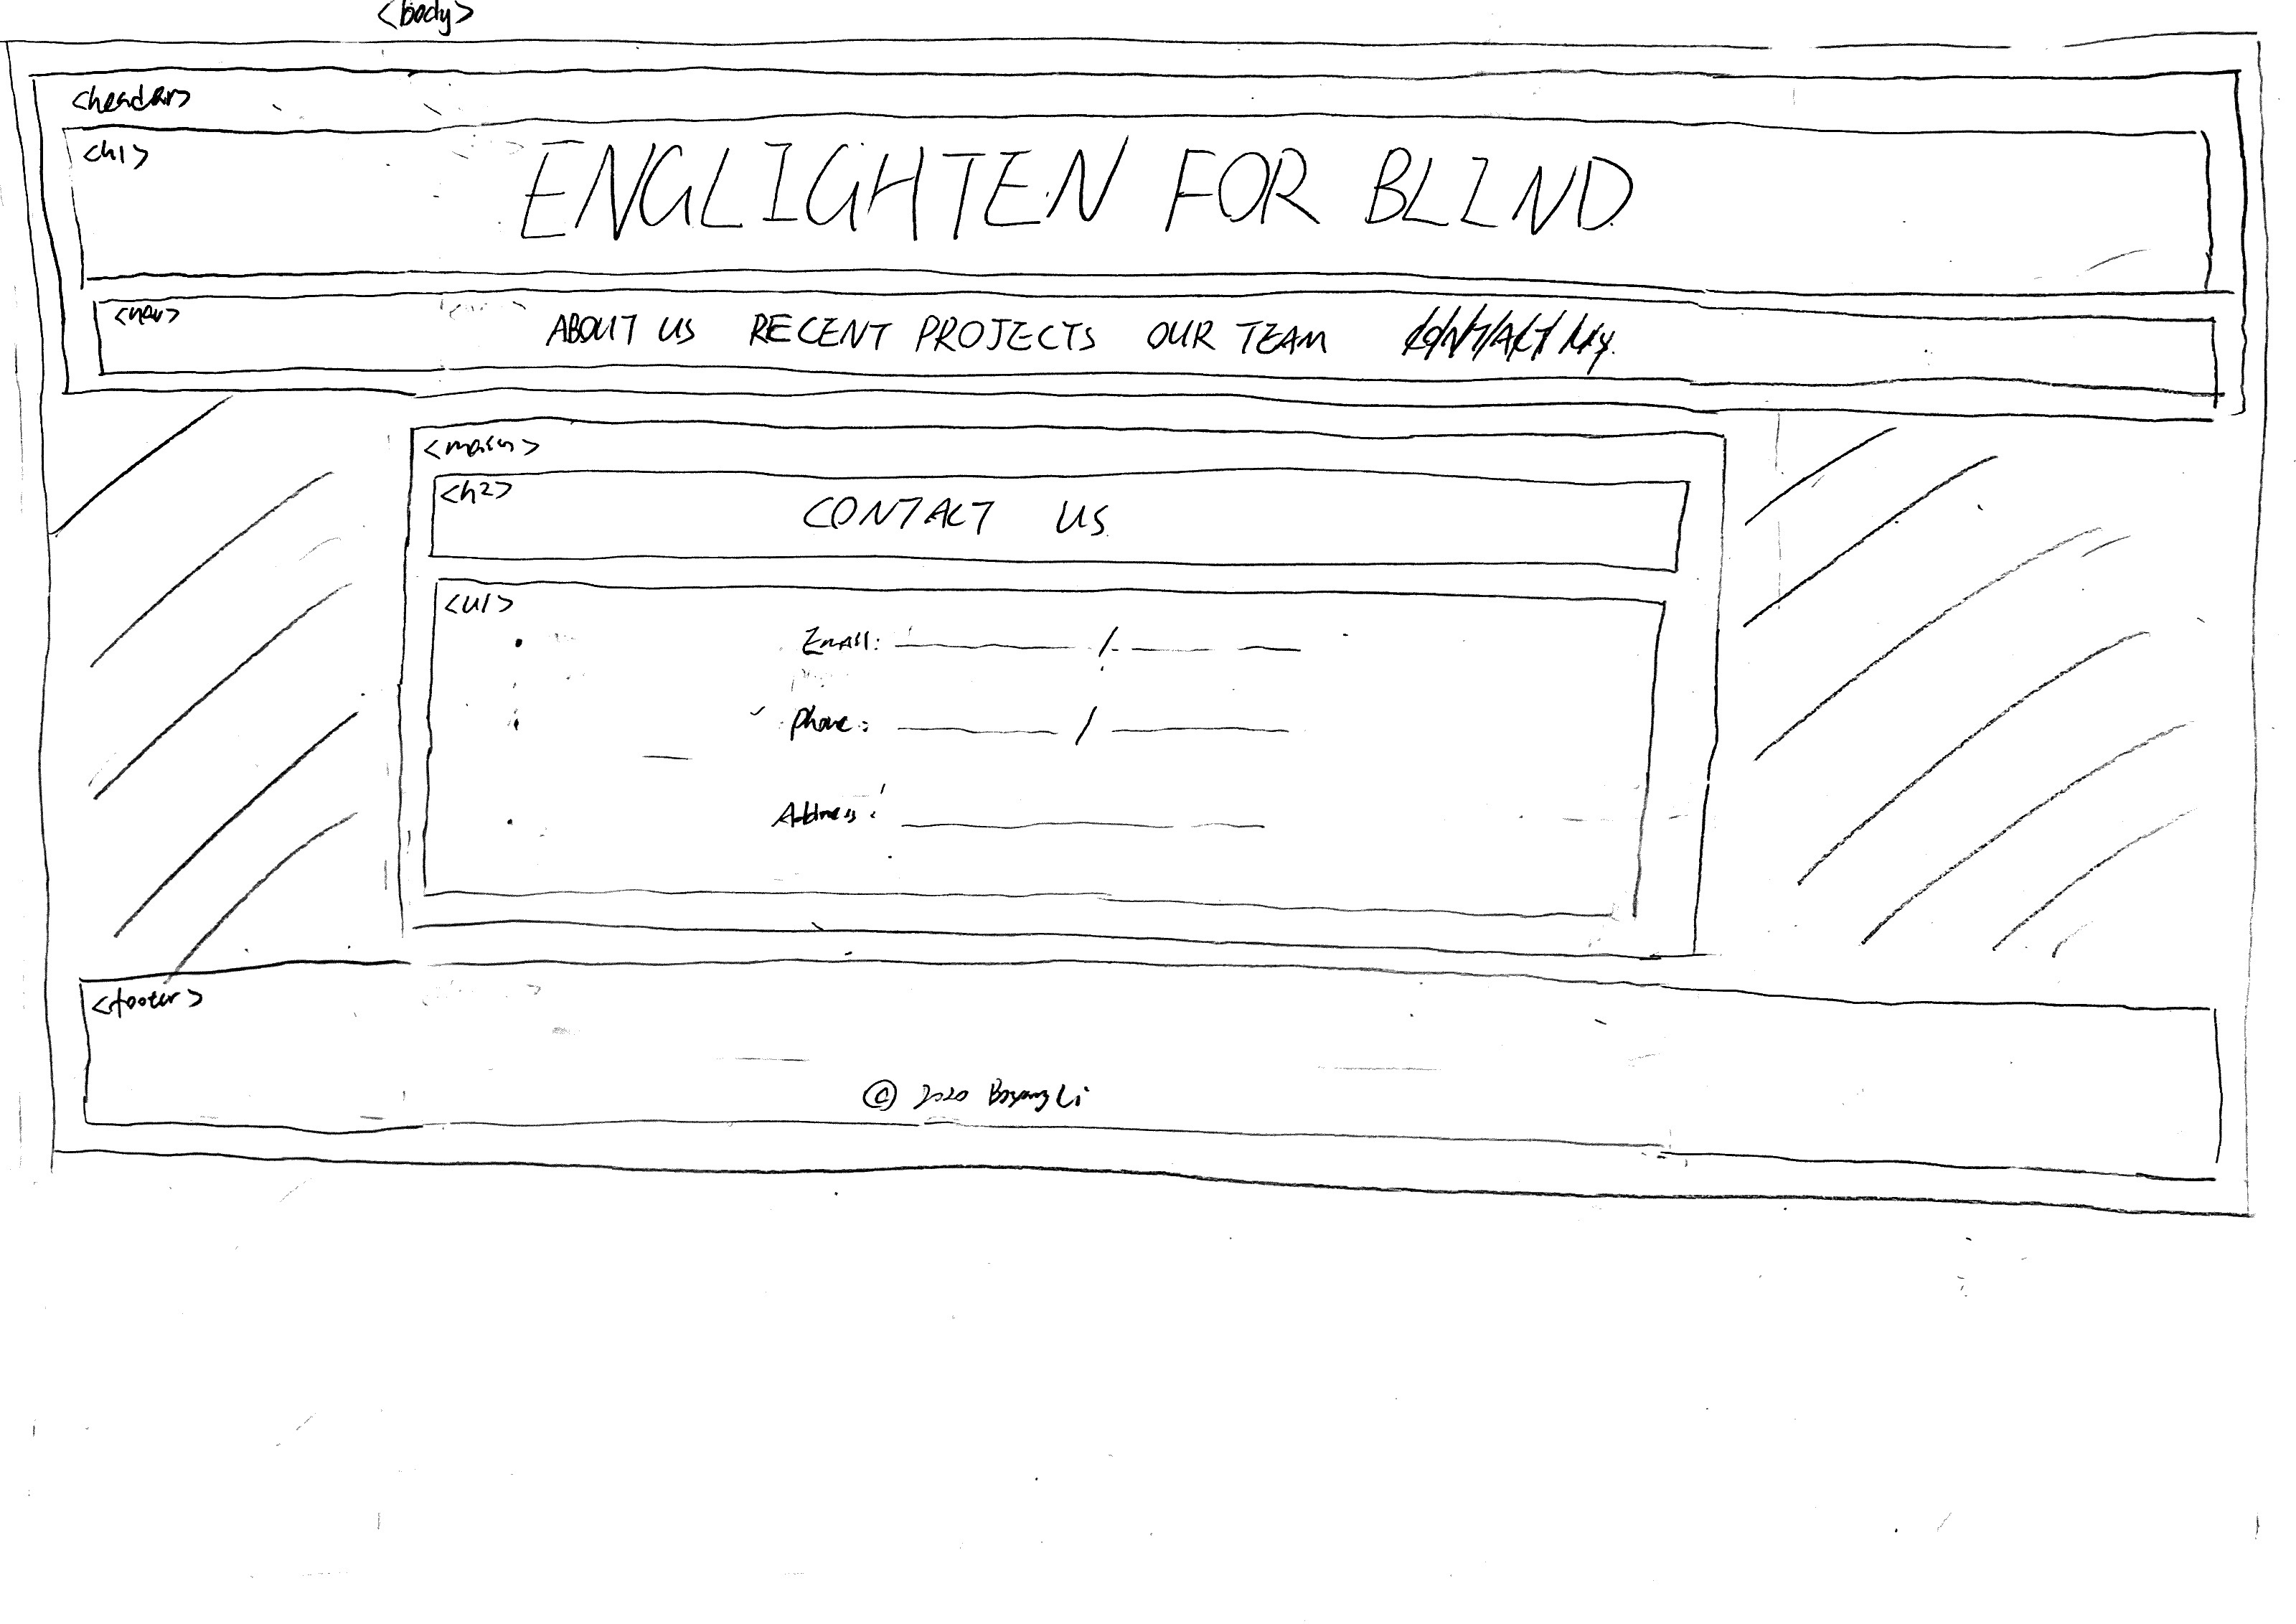 <body>
<header>
<h1>
ENGLIGHTEN FOR BLIND
<nav>
ABOUT US RECENT PROJECTS OUR TEAM CONTACT
<main>
<h2>
CONTACT US
<ul>
Email: /
Phone: /
Address:
<footer>
© 2020 Boyang Li